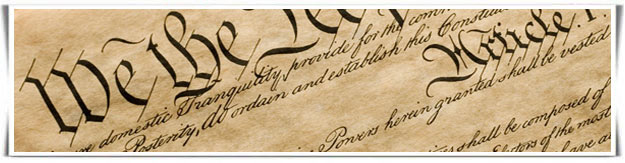 We the Pe
ure domestic Tranquility, provide for the com
Posterity, do ordain and establish this Constitu
Article. I.
Powers herein granted shall be vested
shall be composed of
Electors of the most
have a